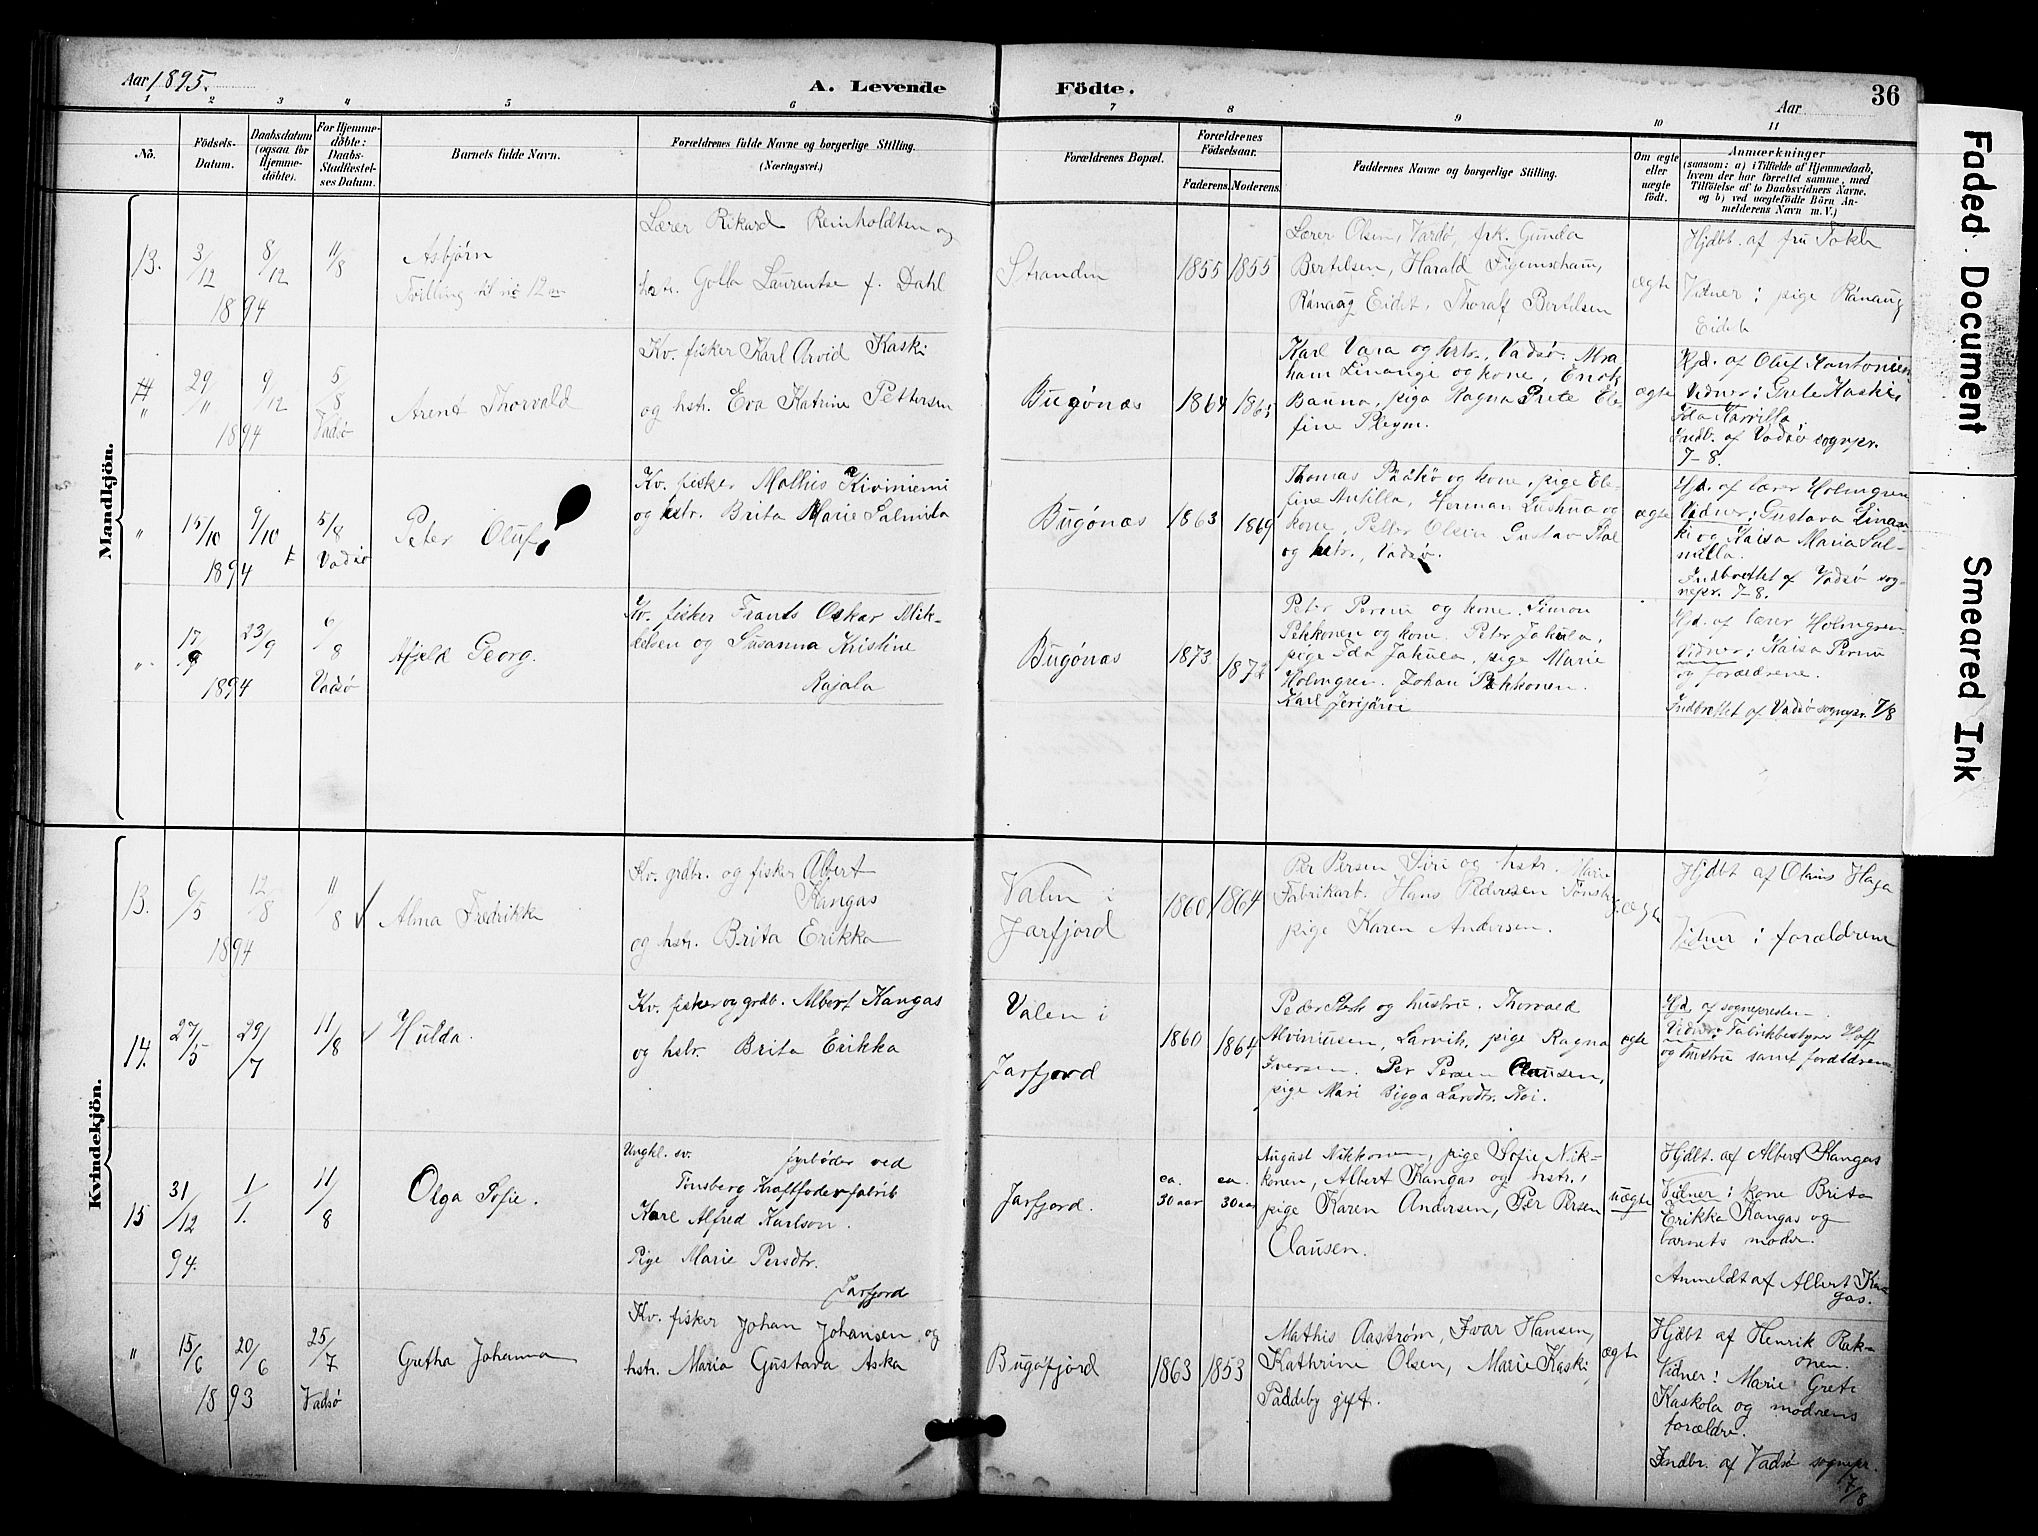 Aar 1895.
A. Levende Födte.
Aar
36
1 2 3 4 5 6 7 8 9 10 11
No.
Födsels-Datum.
Daabsdatum (ogsaa för Hjemme-döbte).
For Hjemme-döbte: Daabs-Stadfæstel-ses Datum.
Barnets fulde Navn.
Forældrenes fulde Navne og borgerlige Stilling.
(Næringsvei.)
Forældrenes Bopæl.
Forældrenes Födselsaar.
Faderens. Moderens.
Faddernes Navne og borgerlige Stilling.
Om ægte eller uægte födt.
Anmærkninger
(saasom: a) i Tilfælde af Hjemmedaab,
hvem der har forrettet samme, med
Tilföielse af to Daabsvidners Navne,
og b) ved uægtefödte Börn An-
melderens Navn m. V.)
Mandkjön.
13. 3/12 1894 8/12 11/8
Asbjörn
Tvilling til no 12
Lærer Rikard Reinholdtsen og
hstr. Golla Laurentse f. Dahl
Stranden
1855 1855
Lærer Olsen, Vardø, frk. Gunda
Bertelsen, Harald Figenschau,
Ranaug Eidet, Thoralf Bertelsen
ægte
Hjdbt. af fru
Vidner: pige Ranaug
Eidet
" 29/11 1894 9/12 5/8 Vadsø
Arent Thorvald
Kv. fisker Karl Arvid Kaski
og hstr. Eva Katrine Pettersen
Bugønæs
1864 1865
Karl Vara og hstr., Vadsø. Abra
ham Linange og kone, Enok
Bauna, piga Ragna Grete Ele-
fine Pleym.
ægte
Hjd. af Oluf
Vidner: Grete Kaski,
Ida
Indb. af Vadsø sognepr.
7-8.
" 15/10 1894 9/10 5/8 Vadsø
Peter Oluf
Kv. fisker Mathis Kiviniemi
og hstr. Brita Marie Salmila
Bugønæs
1863 1869
Thomas og kone, pige Ele-
fine Antilla, Herman og
kone, Petter Olsen Gustav
og hstr., Vadsø.
ægte
Hjd. af lærer Holmgren
Vidner: Gustava
og Kaisa Maria Sal-
milla.
Indberettet af Vadsø sog-
nepr. 7-8.
" 17/9 1894 23/9 6/8 Vadsø
Afjeld Georg.
Kv. fisker Frants Oskar Mik-
kelsen og Susanna Kristine
Rajala
Bugønæs
1873 1872
Peter Pernu og kone. Simon
Pekkonen og kone. Peter Jakula,
pige Ida Jakula, pige Marie
Holmgren. Johan Pekkonen.
Karl Jerijärvi
Hjd. af lærer Holmgren
Vidner: Kaisa Pernu
og forældrene.
Indberettet af Vadsø sognepr. 7/8
Kvindekjön.
13. 6/5 1894 12/8 11/8
Alma Fredrikke
Kv. grdbr. og fisker Albert
Kangas
og hstr. Brita Erikka
Valen i
Jarfjord
1860 1864
Per Persen Siri og hstr.
Fabrikarb. Hans Pedersen Tønsberg
pige Karen Andersen.
ægte
Hjdbt af Olaus Haga
Vidner: forældrene
14. 27/5 29/7 11/8
Hulda.
Kv. fisker og grdb. Albert Kangas
og hstr. Brita Erikka
Valen i
Jarfjord
1860 1864
Peder og hustru. Thorvald
Alviniusen, Larvik, pige Ragna
Iversen. Per Persen Clausen,
pige Mari Bigga Larsdtr.
ægte
Hjd. af sognepresten.
Vidner: Fabrikbestyrer Hoff
og hustru samt forældrene.
15 31/12 94. 1/1. 11/8
Olga Sofie.
Ungkl. fyrbøder ved
Tønsberg Kraftfoderfabrik
Karl Alfred Karlson.
Pige Marie Persdtr.
Jarfjord
Jarfjord.
ca. 30 aar ca. 30 aar
August Nikkonen, pige Sofie Nik-
konen, Albert Kangas og hstr.,
pige Karen Andersen, Per Persen
Clausen.
uægte
Hjdbt. af Albert Kangas
Vidner: kone Brita
Erikka Kangas og
barnets moder.
Anmeldt af Albert Kan
gas.
" 15/6 1893 20/6 25/7 Vadsø
Gretha Johanna
Kv. fisker Johan Johansen og
hstr. Maria Gustava Aska
Bugøfjord
1863 1853
Mathis Aaström, Ivar Hansen,
Kathrine Olsen, Marie Kaski,
Paddeby gift.
ægte
Hjdbt af Henrik Rak-
onen.
Vidner: Marie Grete
Kaskola og moderens
forældre.
Indbr. af Vadsø sognepr.
7/8
Faded Document
Smeared Ink